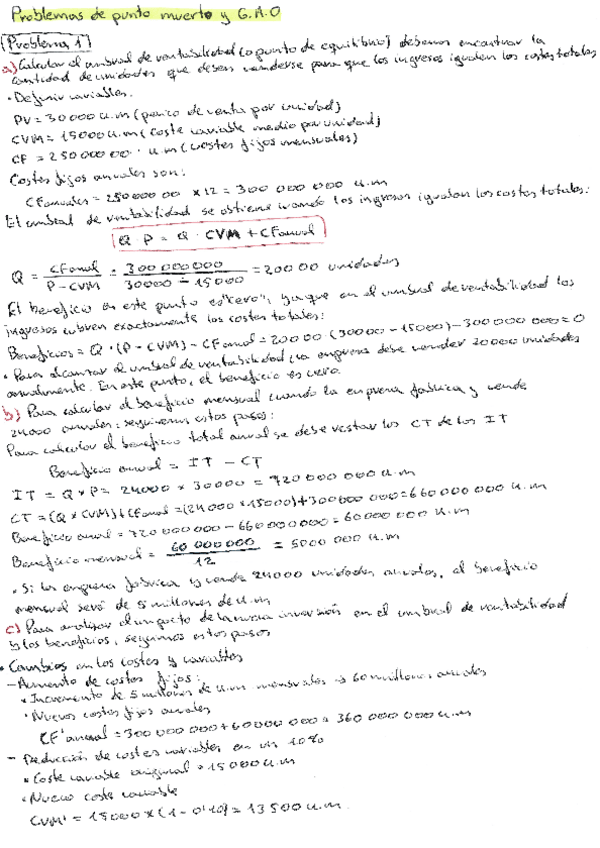 Problemas de punto muerto y G.A.O
Problema 1
a) Calcular el umbral de rentabilidad (o punto de equilibrio) debemos encontrar la
cantidad de unidades que deben venderse para que los ingresos igualen los costes totales
• Definir variables.
PV = 30000 u.m (precio de venta por unidad)
CVM = 15000 u.m (coste variable medio por unidad)
CF = 25000000 u.m (costes fijos mensuales)
Costes fijos anuales son:
CFanuales = 25000000 x 12 = 300 000 000 u.m
El umbral de rentabilidad se obtiene cuando los ingresos igualan los costes totales:
Q P = Q · CVM + CFanual
Q = CFanual / P - CVM = 300 000 000 / 30000 - 15000 = 20000 unidades
El beneficio en este punto es "cero", ya que en el umbral de rentabilidad los
ingresos cubren exactamente los costes totales:
Beneficios = Q · (P - CVM) - CFanual = 20000 (30000 - 15000) - 300 000 000 = 0
• Para alcanzar el umbral de rentabilidad, la empresa debe vender 20000 unidades
anualmente. En este punto, el beneficio es cero.
b) Para calcular el beneficio mensual cuando la empresa fabrica y vende
24000 anuales: seguiremos estos pasos:
Para calcular el beneficio total anual se debe restar los CT de los IT
Beneficio anual = IT - CT
IT = Q x P = 24000 x 30000 = 720 000 000 u.m
CT = (Q x CVM) + CFanual = (24000 x 15000) + 300000 000 = 660 000 000 u.m
Beneficio anual = 720 000 000 - 660 000 000 = 60000 000 u.m
Beneficio mensual = 60 000 000 / 12 = 5000 000 u.m
• Si la empresa fabrica y vende 24000 unidades anuales, el beneficio
mensual será de 5 millones de u.m
c) Para analizar el impacto de la nueva inversión en el umbral de rentabilidad
y los beneficios, seguimos estos pasos
• Cambios en los costes y variables
- Aumento de costes fijos:
• Incremento de 5 millones de u.m mensuales → 60 millones anuales
• Nuevos costes fijos anuales
CF'anual = 300 000 000 + 60 000 000 = 360 000 000 u.m
- Reducción de costes variables en un 10%
• Coste variable original = 15 000 u.m
• Nuevo coste variable
CVM' = 15000 x (1 - 0'10) = 13500 u.m